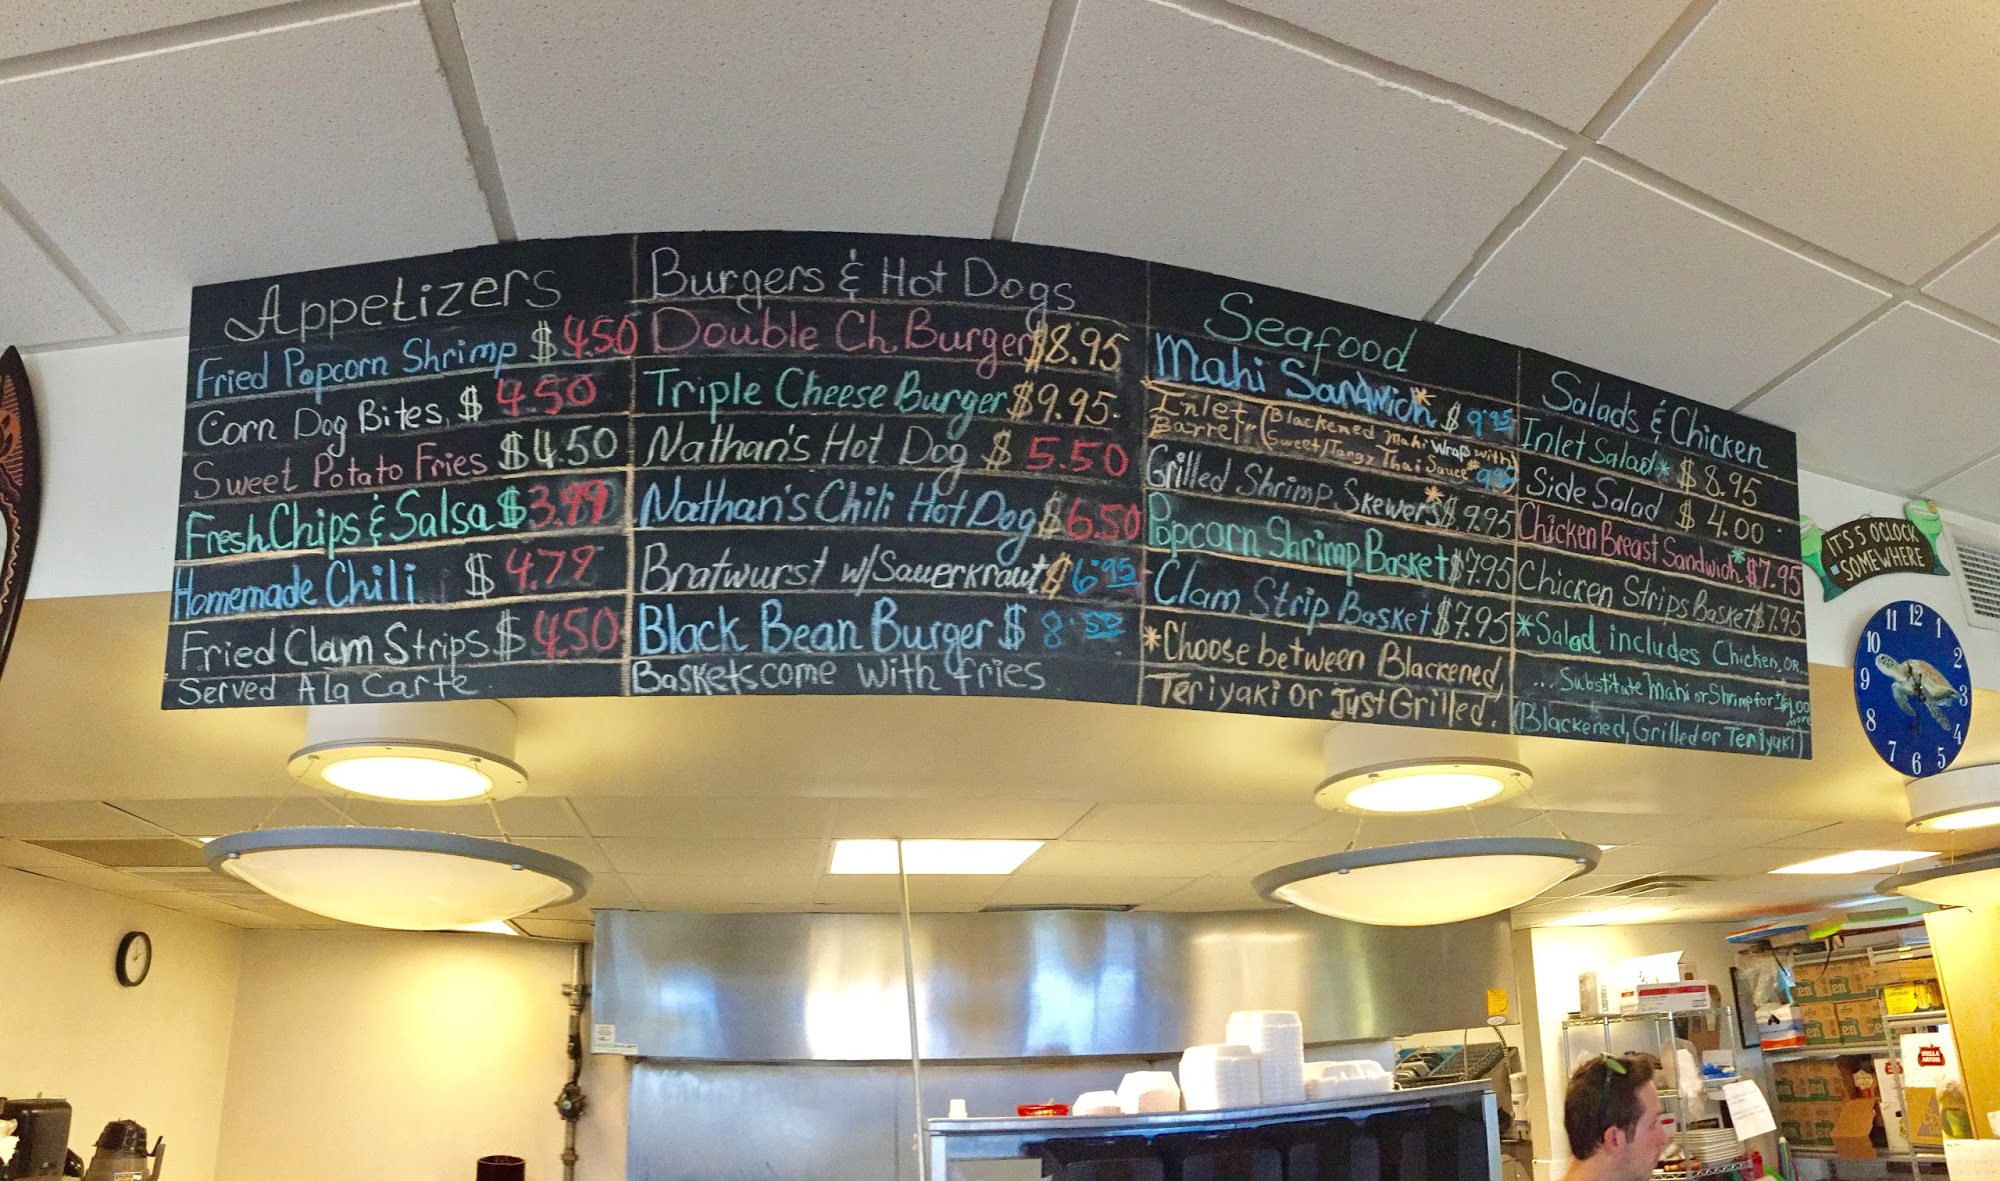 Appetizers
Fried Popcorn Shrimp $4.50
Corn Dog Bites, $4.50
Sweet Potato Fries $4.50
Fresh Chips & Salsa $3.99
Homemade Chili $4.79
Fried Clam Strips $4.50
Served A La Carte
Burgers & Hot Dogs
Double Ch. Burger $8.95
Triple Cheese Burger $9.95
Nathan's Hot Dog $5.50
Nathan's Chili Hot Dog $6.50
Bratwurst w/Sauerkraut $6.95
Black Bean Burger $8.50
Baskets come with fries
Seafood
Mahi Sandwich* $9.95
Inlet (Blackened Mahi Wrap with
Barrel- Sweet/Tangy Thai Sauce) $9.95
Grilled Shrimp Skewers* $9.95
Popcorn Shrimp Basket $7.95
Clam Strip Basket $7.95
*Choose between Blackened,
Teriyaki or Just Grilled.
Salads & Chicken
Inlet Salad* $8.95
Side Salad $4.00
Chicken Breast Sandwich* $7.95
Chicken Strips Basket $7.95
*Salad includes Chicken, or...
...Substitute Mahi or Shrimp for $1.00 more
(Blackened, Grilled or Teriyaki)
IT'S 5 O'CLOCK
SOMEWHERE
12
1
2
3
4
5
6
7
8
9
10
11
STELLA
ARTOIS